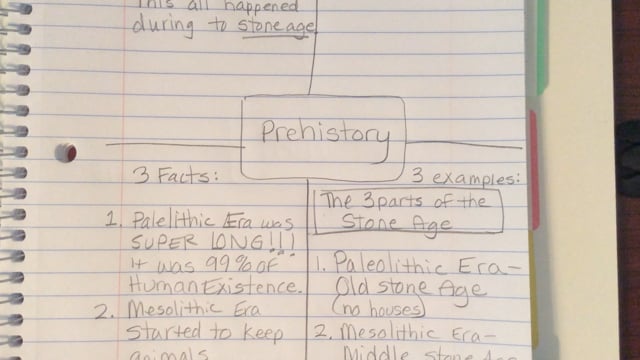 This all happened
during to stone age
Prehistory
3 Facts:
1. Palelithic Era was
SUPER LONG!!!
it was 99% of
Human Existence.
2. Mesolithic Era
started to keep
animals
3 examples:
The 3 parts of the
Stone Age
1. Paleolithic Era-
Old stone Age
(no houses)
2. Mesolithic Era-
Middle stone Age